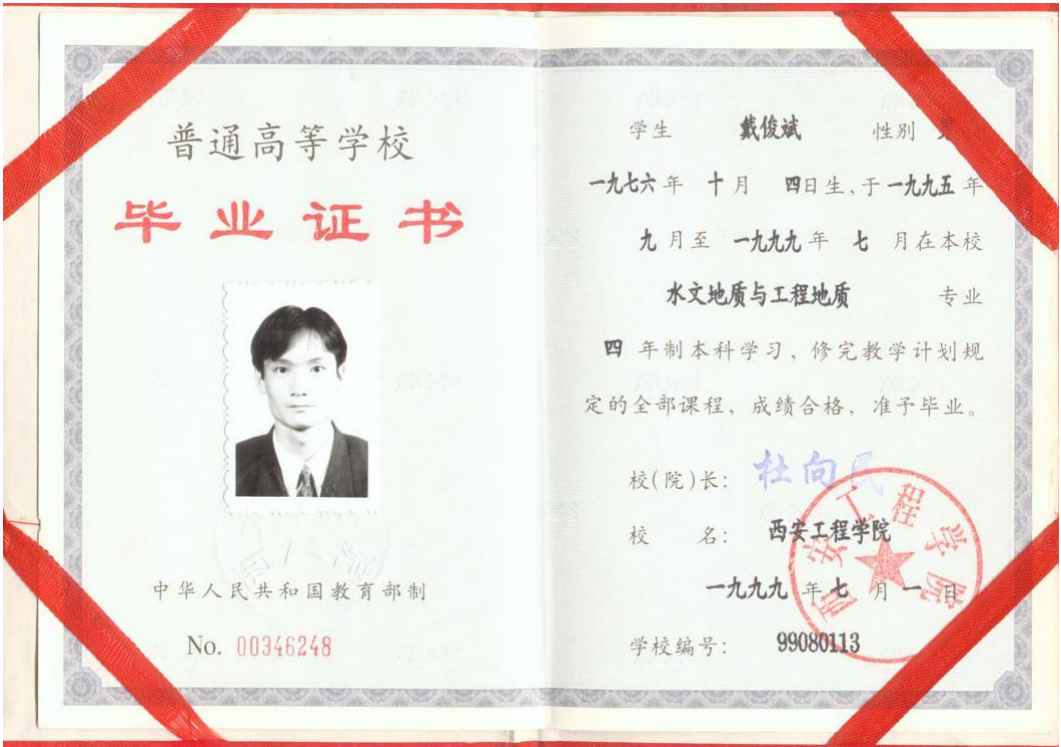 普通高等学校
毕业证书
中华人民共和国教育部制
No. 00346248
学生 戴俊斌 性别
一九七六年 十月 四日生,于一九九五年
九月至 一九九九年 七 月在本校
水文地质与工程地质 专业
四 年制本科学习，修完教学计划规
定的全部课程，成绩合格，准予毕业。
校(院)长: 杜向民
校 名: 西安工程学院
一九九九 年七 月一日
学校编号: 99080113
西安工程学院